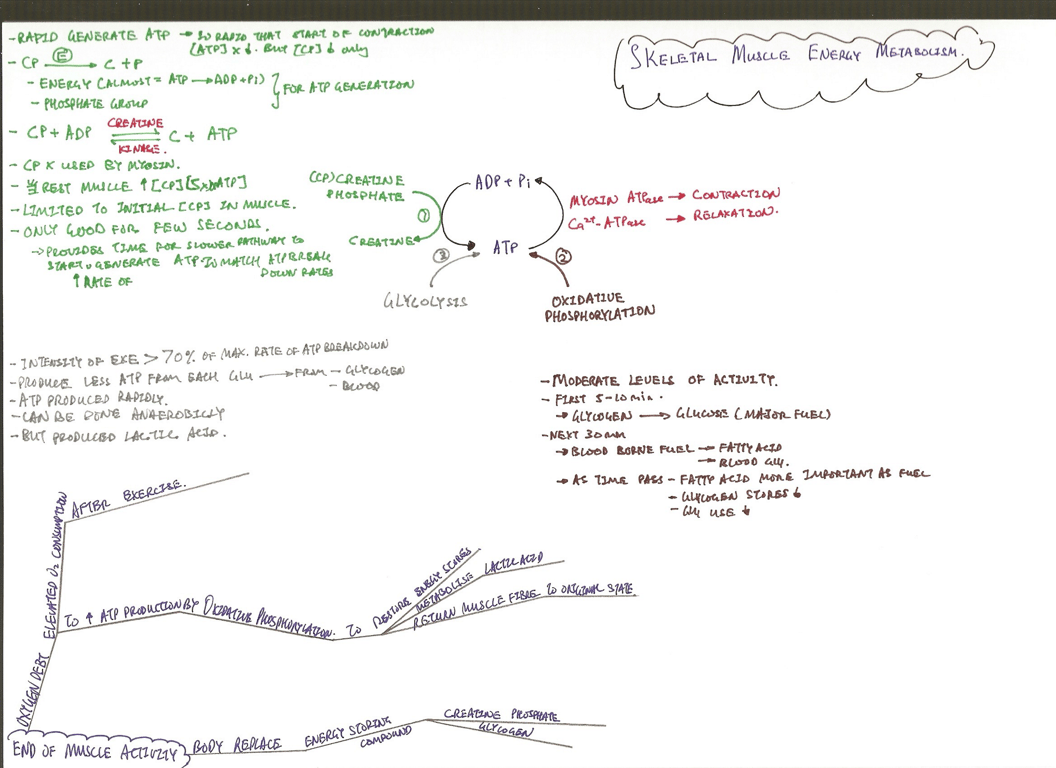 SKELETAL MUSCLE ENERGY METABOLISM.
- RAPID GENERATE ATP → SO RAPID THAT START OF CONTRACTION
[ATP] x ↓. BUT [CP] ↓ only
- CP Ⓔ→ C + P
- ENERGY (ALMOST = ATP → ADP + Pi)
- PHOSPHATE GROUP
} FOR ATP GENERATION
- CP + ADP ⇌ C + ATP
CREATINE
KINASE.
- CP X USED BY MYOSIN.
- REST MUSCLE ↑ [CP] [5x ATP]
- LIMITED TO INITIAL [CP] IN MUSCLE.
- ONLY GOOD FOR FEW SECONDS.
→ PROVIDES TIME FOR SLOWER PATHWAY TO
START & GENERATE ATP TO MATCH ATP BREAK
DOWN RATES
↑ RATE OF
(CP) CREATINE
PHOSPHATE
①
CREATINE
ADP + Pi
ATP
MYOSIN ATPase → CONTRACTION
Ca²⁺-ATPase → RELAXATION.
③
GLYCOLYSIS
②
OXIDATIVE
PHOSPHORYLATION
- INTENSITY OF EXE > 70% OF MAX. RATE OF ATP BREAKDOWN
- PRODUCE LESS ATP FROM EACH GLU → FROM - GLYCOGEN
- BLOOD
- ATP PRODUCED RAPIDLY.
- CAN BE DONE ANAEROBICLLY
- BUT PRODUCED LACTIC ACID.
- MODERATE LEVELS OF ACTIVITY.
- FIRST 5-10 min.
→ GLYCOGEN → GLUCOSE (MAJOR FUEL)
- NEXT 30 min
→ BLOOD BORNE FUEL → FATTY ACID
→ BLOOD GLU.
→ AS TIME PASS - FATTY ACID MORE IMPORTANT AS FUEL
- GLYCOGEN STORES ↓
- GLU USE ↓
END OF MUSCLE ACTIVITY
OXYGEN DEBT
ELEVATED O₂ CONSUMPTION
AFTER EXERCISE.
TO ↑ ATP PRODUCTION BY OXIDATIVE PHOSPHORYLATION. TO
RESTORE ENERGY STORES
METABOLISE LACTIC ACID
RETURN MUSCLE FIBRE TO ORIGINAL STATE.
BODY REPLACE
ENERGY STORING
COMPOUND
CREATINE PHOSPHATE
GLYCOGEN